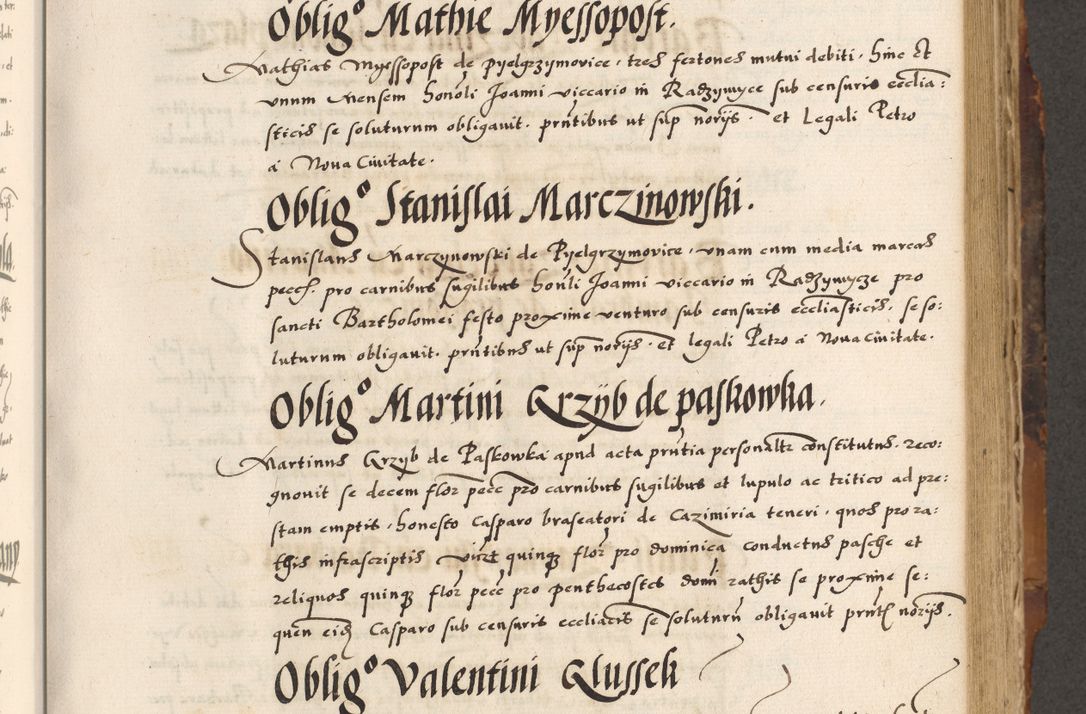 Oblig° Mathie Myessopost.
Mathias Myessopost de Pyelgrzymovice, tres fertones mutui debiti, hinc et
unum mensem honoli Joanni viccario in Radzywyce sub censuris ecclia:
sticis se soluturum obligavit. pntibus ut sup norijs. et Legali Petro
a Nova Civitate.
Oblig° Stanislai Marczinowski.
Stanislaus Marczynowski de Pyelgrzymovice, unam cum media marcas
pecc. pro carnibus sugilibus honli Joanni viccario in Radzywycze pro
sancti Bartholomei festo proxime venturo sub censuris eccliasticis, se so:
luturum obligavit. pntibus ut sup norijs. et legali Petro a Nova Civitate.
Oblig° Martini Grzyb de paskowka.
Martinus Grzyb de Paskowka apud acta pntia personaltr constitutus, reco:
gnovit se decem flor pecc pro carnibus sugilibus et lupulo ac tritico ad pre:
stam emptis, honesto Casparo braseatori de Cazimiria teneri, quos pro ra:
this infrascriptis vizt quinq flor pro dominica conductus pasche et
reliquos quinq flor pecc pro penthecostes domi rathis se proxime se:
quen eid Casparo sub censuris eccliacis se soluturu obligavit pntt norijs.
Oblig° Valentini Klussek